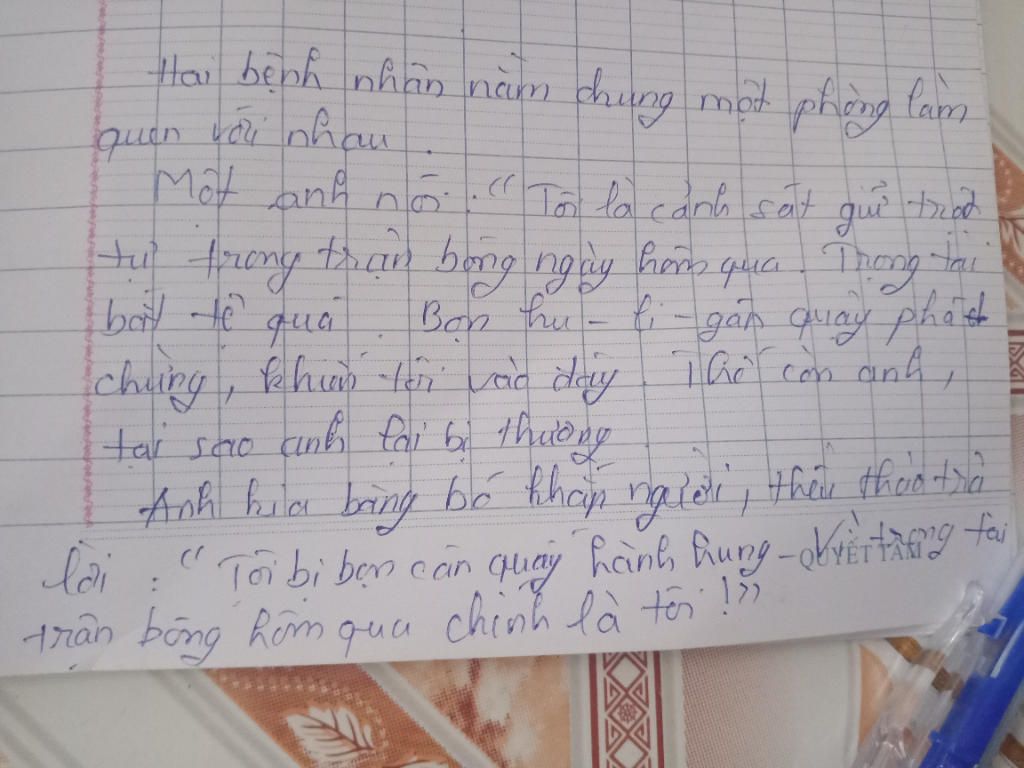 Hai bệnh nhân nằm chung một phòng làm
quen với nhau.
Một anh nói: "Tôi là cảnh sát giữ trật
tự trong trận bóng ngày hôm qua. Trọng tài
bắt tệ quá. Bọn hu-li-gân quậy phá
chúng, khiến tôi vào đây. Thế còn anh,
tại sao anh lại bị thương
Anh kia băng bó khắp người, thều thào trả
lời: "Tôi bị bọn càn quấy hành hung - Vì trọng tài
QUYẾT TÂM
trận bóng hôm qua chính là tôi!"